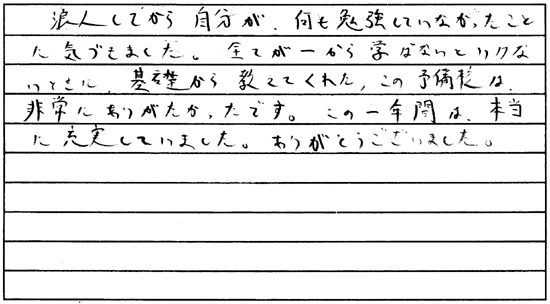 浪人してから自分が、何も勉強していなかったこと
に気づきました。全てが一から学ばないといけな
いときに、基礎から教えてくれた、この予備校は、
非常にありがたかったです。この一年間は、本当
に充実していました。ありがとうございました。